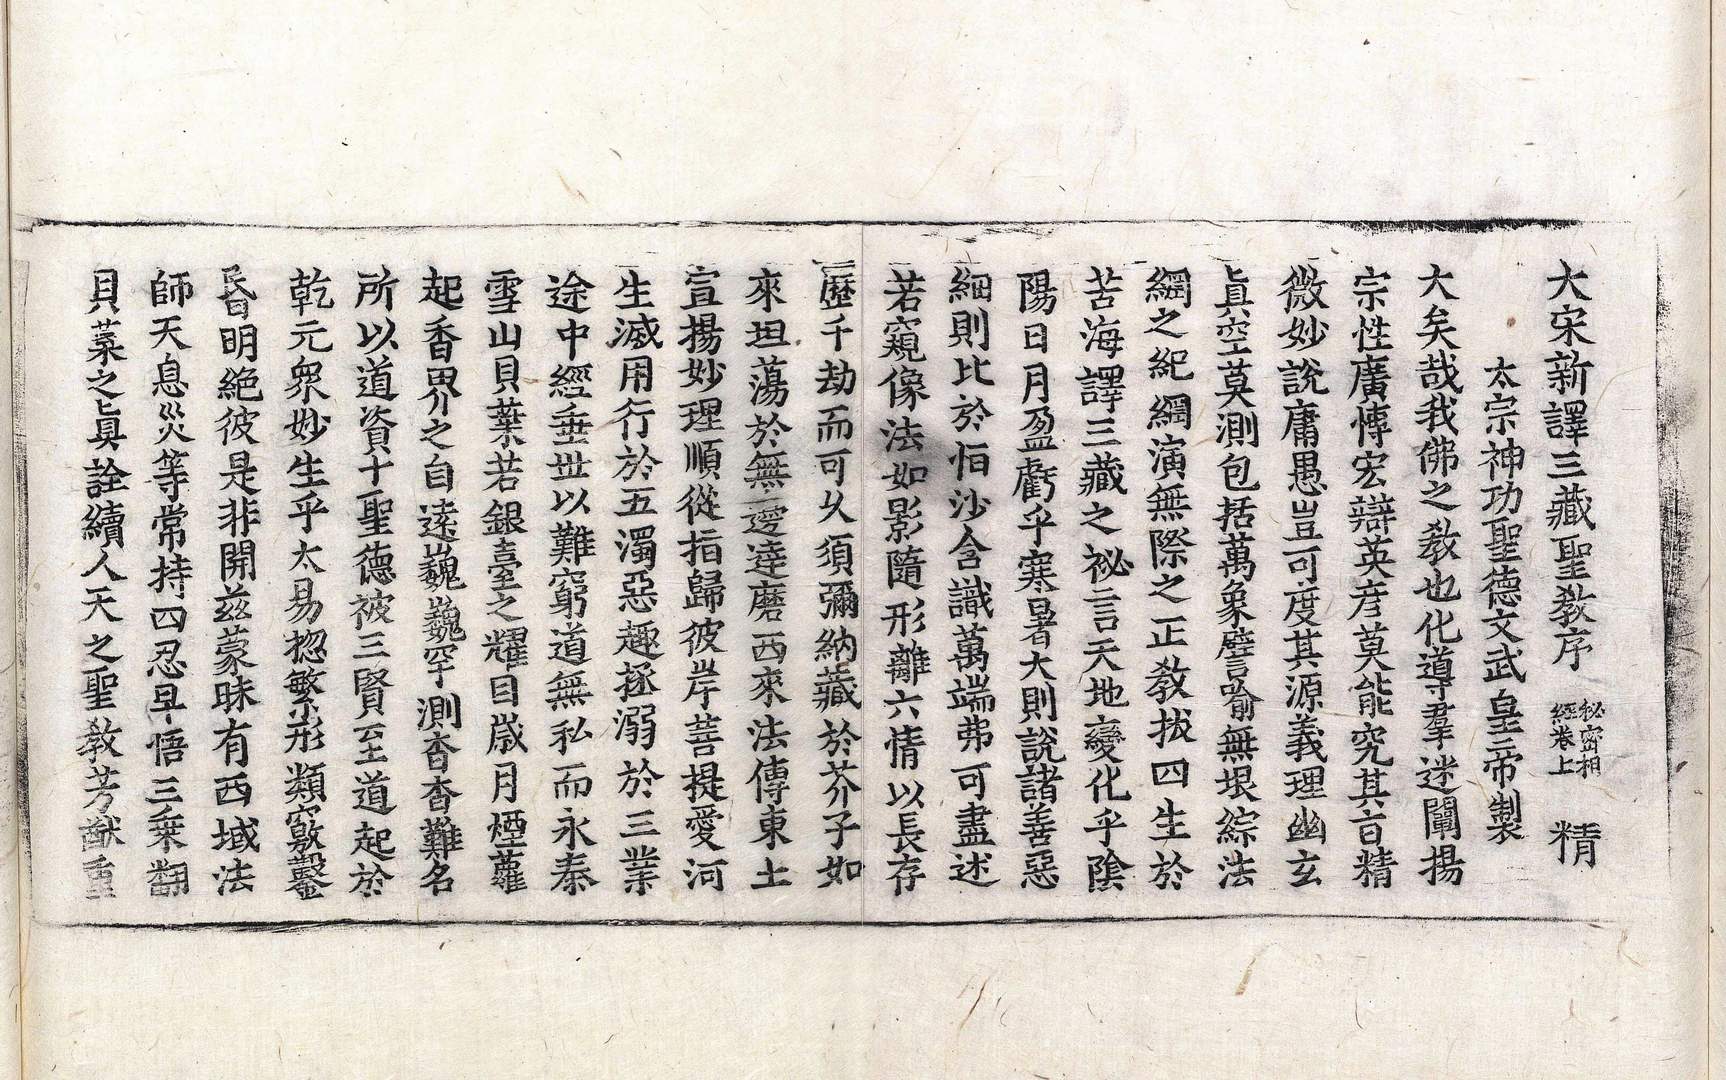 大宋新譯三藏聖教序 秘密相經卷上 精
太宗神功聖德文武皇帝製
大矣哉我佛之教也化導羣迷闡揚
宗性廣博宏辯英彦莫能究其旨精
微妙說庸愚豈可度其源義理幽玄
眞空莫測包括萬象譬喻無垠綜法
網之紀綱演無際之正教拔四生於
苦海譯三藏之祕言天地變化乎陰
陽日月盈虧乎寒暑大則說諸善惡
細則比於恒沙含識萬端弗可盡述
若窺像法如影隨形離六情以長存
歷千劫而可久須彌納藏於芥子如
來坦蕩於無邊達磨西來法傳東土
宣揚妙理順從指歸彼岸菩提愛河
生滅用行於五濁惡趣拯溺於三業
途中經垂世以難窮道無私而永泰
雪山貝葉若銀臺之耀目歲月煙蘿
起香界之自遠巍巍罕測杳杳難名
所以道資十聖德被三賢至道起於
乾元衆妙生乎太易揔繁形類竅鑿
昏明絕彼是非開兹蒙昧有西域法
師天息災等常持四忍早悟三乘翻
貝葉之眞詮續人天之聖教芳猷重